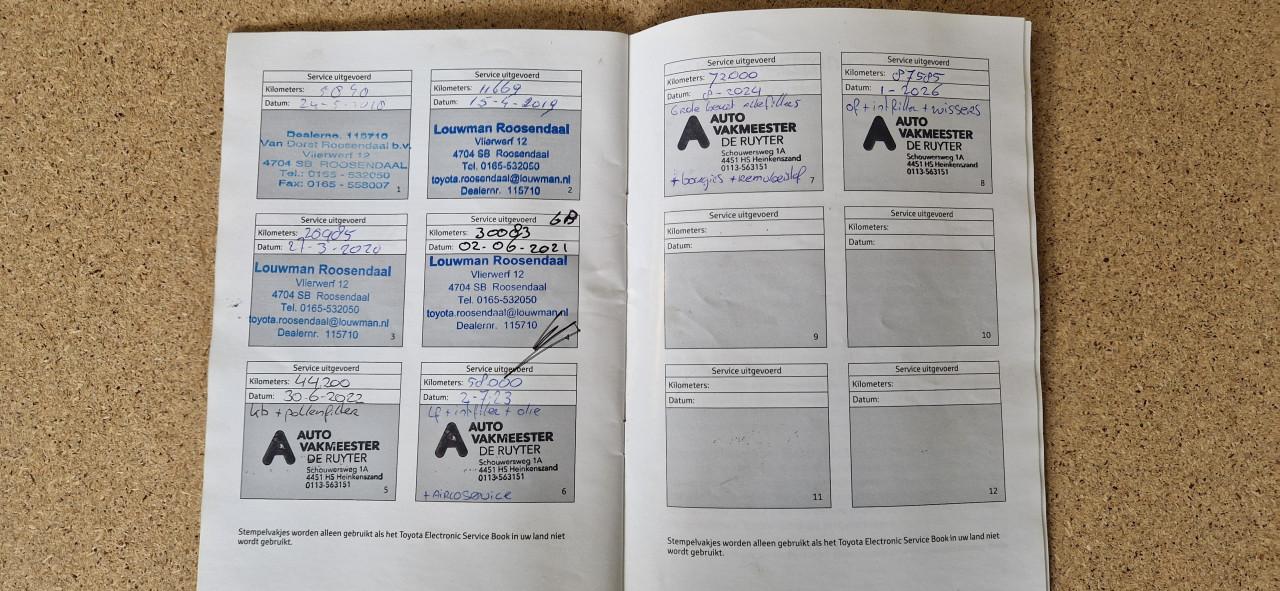 Service uitgevoerd
Kilometers:
Datum: 24-5-2018
Dealerno. 115710
Van Dorst Roosendaal b.v.
Vlierwerf 12
4704 SB ROOSENDAAL
Tel.: 0165 - 532050
Fax: 0165 - 558007
1
Service uitgevoerd
Kilometers: 11669
Datum: 15-4-2019
Louwman Roosendaal
Vlierwerf 12
4704 SB Roosendaal
Tel. 0165-532050
toyota.roosendaal@louwman.nl
Dealernr. 115710
2
Service uitgevoerd
Kilometers: 20985
Datum: 27-3-2020
Louwman Roosendaal
Vlierwerf 12
4704 SB Roosendaal
Tel. 0165-532050
toyota.roosendaal@louwman.nl
Dealernr. 115710
3
Service uitgevoerd GB
Kilometers: 30083
Datum: 02-06-2021
Louwman Roosendaal
Vlierwerf 12
4704 SB Roosendaal
Tel. 0165-532050
toyota.roosendaal@louwman.nl
Dealernr. 115710
4
Service uitgevoerd
Kilometers: 44200
Datum: 30-6-2022
kb + pollenfilter
AUTO
VAKMEESTER
DE RUYTER
Schouwersweg 1A
4451 HS Heinkenszand
0113-563151
5
Service uitgevoerd
Kilometers: 58000
Datum: 2-7-23
+ intfilter + olie
AUTO
VAKMEESTER
DE RUYTER
Schouwersweg 1A
4451 HS Heinkenszand
0113-563151
+ Aircoservice
6
Stempelvakjes worden alleen gebruikt als het Toyota Electronic Service Book in uw land niet
wordt gebruikt.
Service uitgevoerd
Kilometers: 72000
Datum: 8-2024
Grote beurt alle filters
AUTO
VAKMEESTER
DE RUYTER
Schouwersweg 1A
4451 HS Heinkenszand
0113-563151
+ bougies + remvloeistof
7
Service uitgevoerd
Kilometers: 87585
Datum: 1-2026
of + intfilter + wissers
AUTO
VAKMEESTER
DE RUYTER
Schouwersweg 1A
4451 HS Heinkenszand
0113-563151
8
Service uitgevoerd
Kilometers:
Datum:
9
Service uitgevoerd
Kilometers:
Datum:
10
Service uitgevoerd
Kilometers:
Datum:
11
Service uitgevoerd
Kilometers:
Datum:
12
Stempelvakjes worden alleen gebruikt als het Toyota Electronic Service Book in uw land niet
wordt gebruikt.